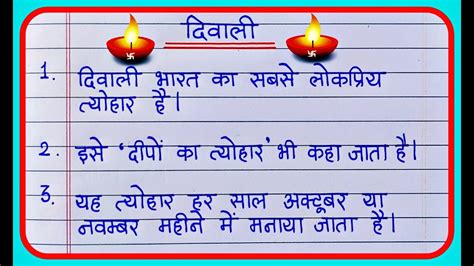 दिवाली
1. दिवाली भारत का सबसे लोकप्रिय
त्योहार है।
2. इसे 'दीपों का त्योहार' भी कहा जाता है।
3. यह त्योहार हर साल अक्टूबर या
नवम्बर महीने में मनाया जाता है।